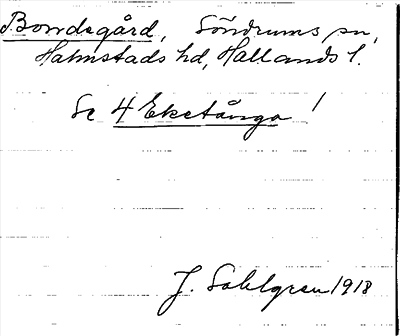 Bondegård, Söndrums sn,
Halmstads hd, Hallands l.
Se 4 Eketånga !
J. Sahlgren 1918